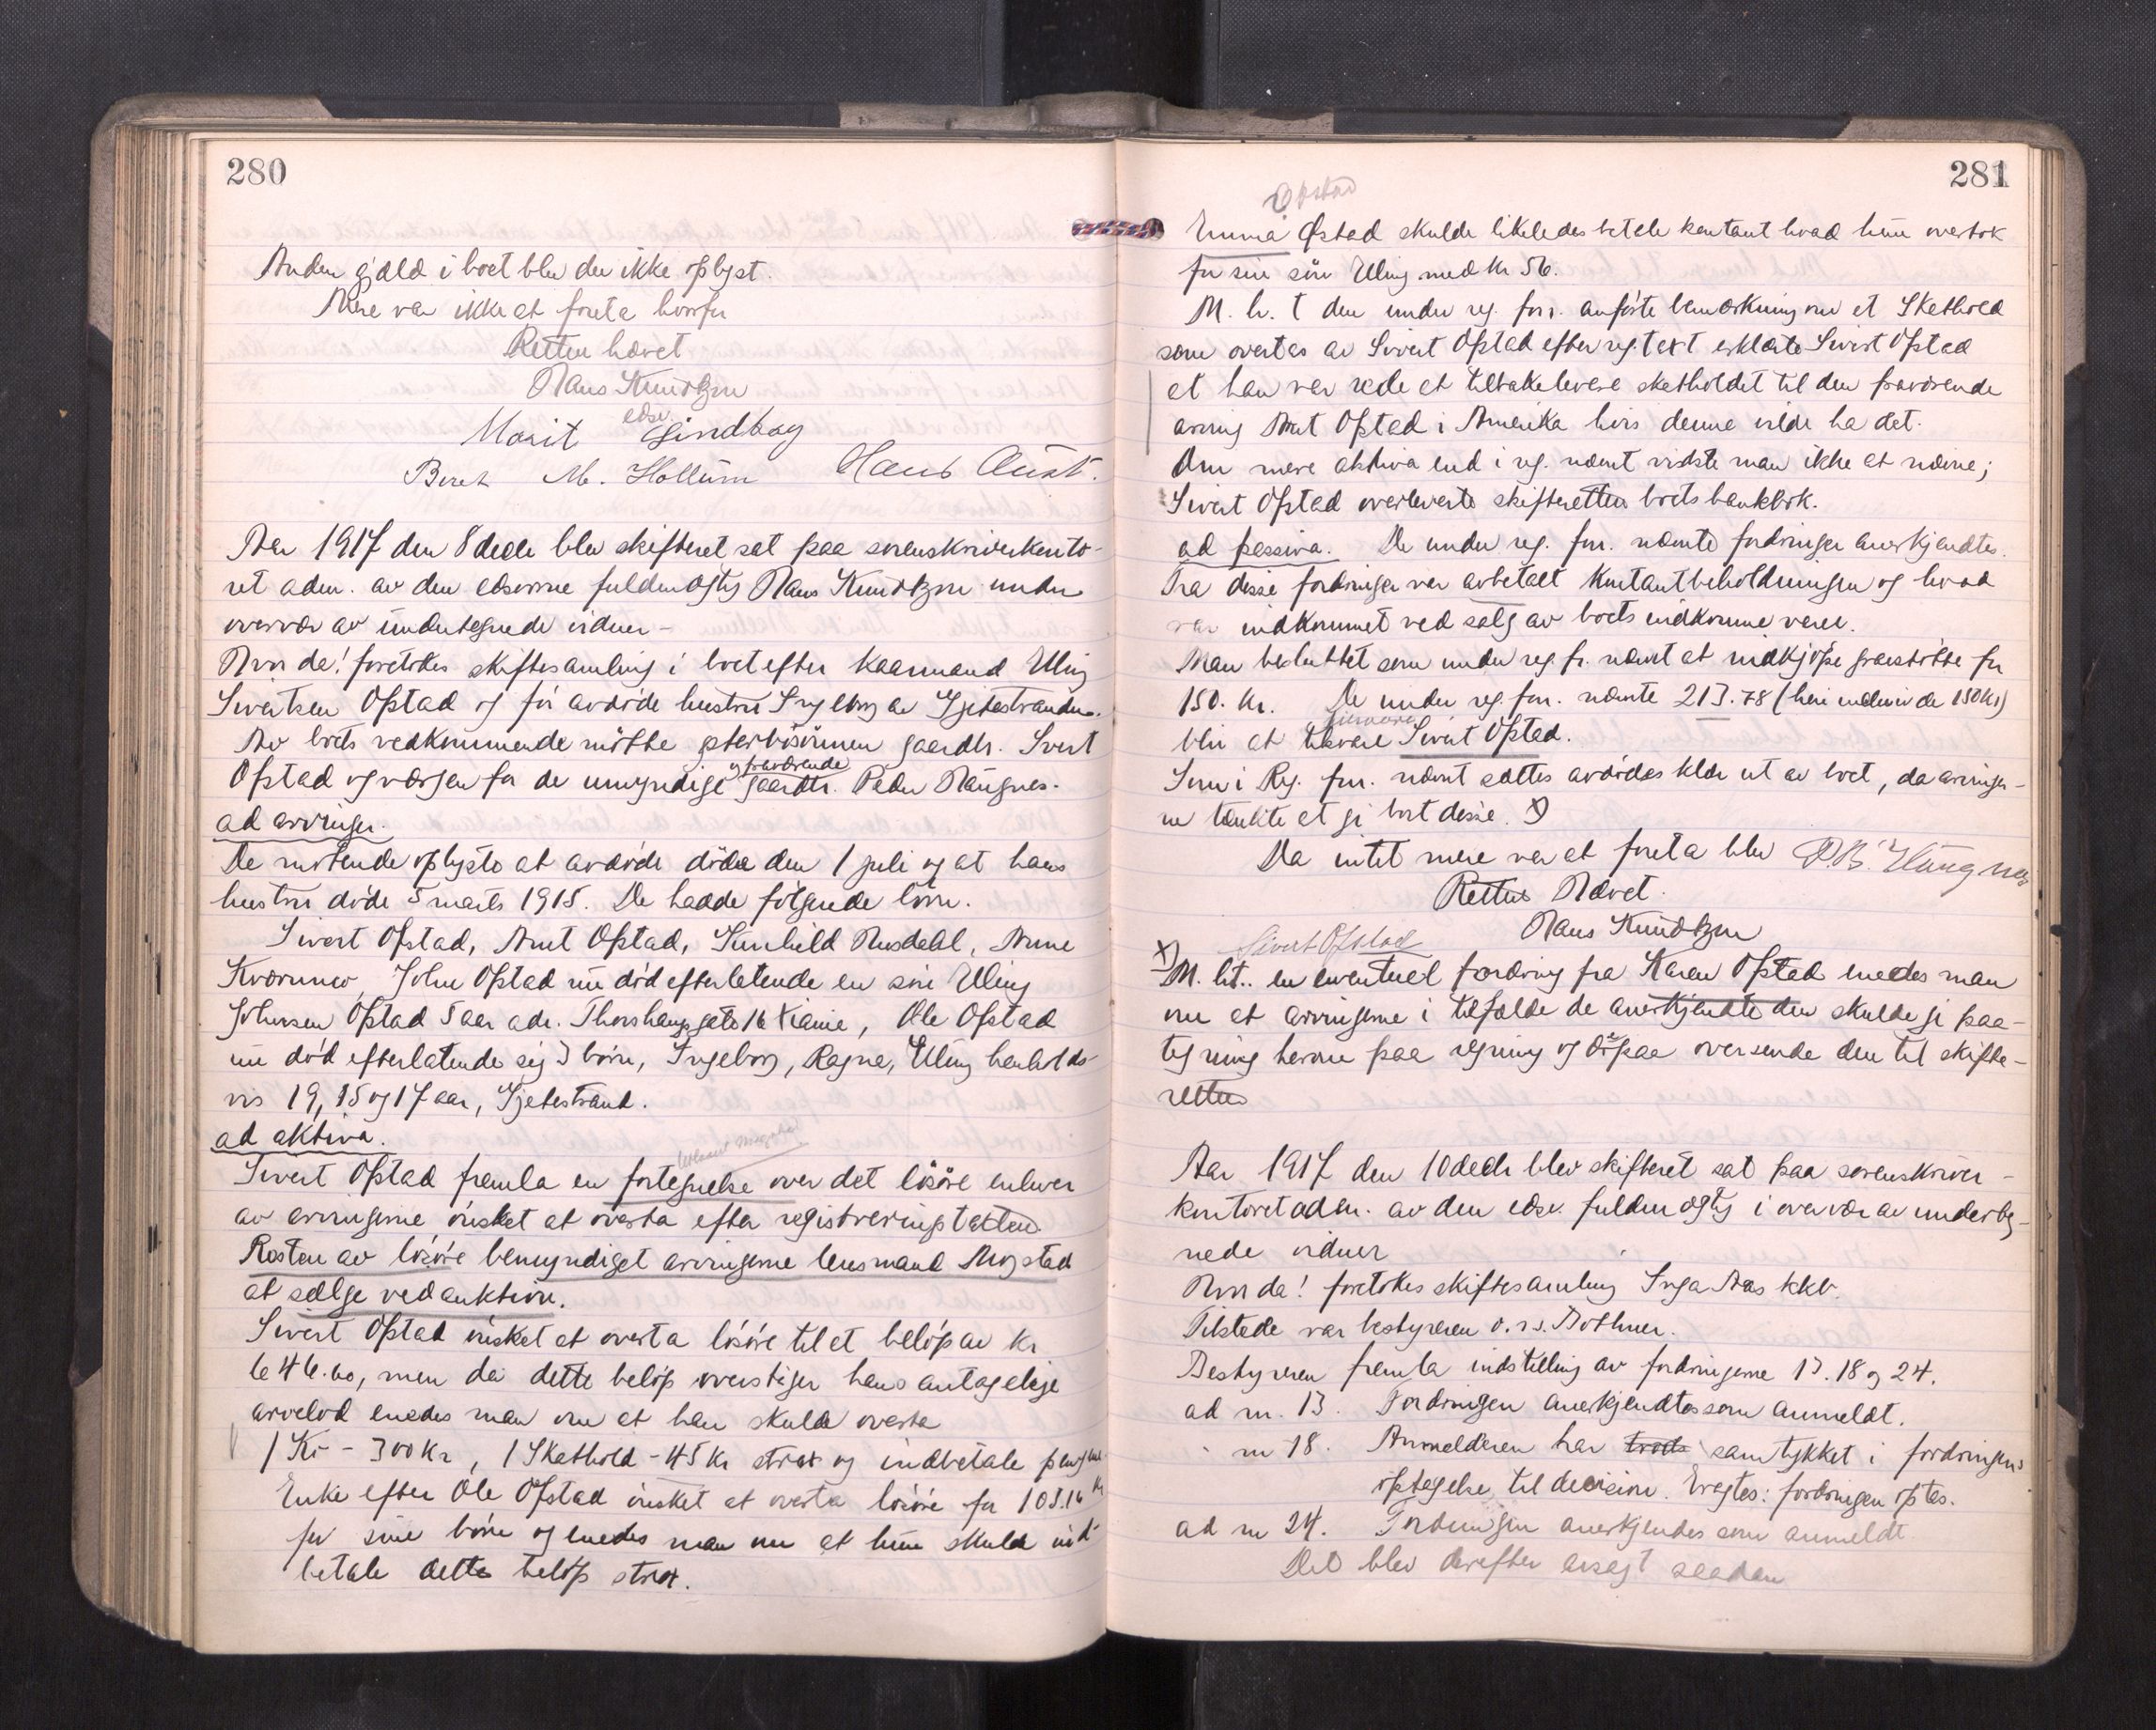 280
Anden gjæld i boet blev der ikke oplyst.
Mere var ikke at foreta hvorfor
Retten hævet
Hans Knudtzon
Marit Lindbag
edsv.
Beret M. Hollum Hans Aune
Aar 1917 den 8 decbr blev skifteret sat paa sorenskriverkonto-
ret adm. av den edsvorne fuldmægtig Hans Knudtzon under
overvær av undertegnede vidner -
Hvorda! foretokes skiftesamling i boet efter kaarmand Elling
Sivertsen Opstad og før avdøde hustru Ingeborg av Gjetestranden.
Av boets vedkommende møtte stervbosønnen gaardbr. Sivert
og fraværende
Opstad og værgen for de umyndige gaardbr. Peder Haugnes.
ad arvinger.
De møtende oplyste at avdøde døde den 1 juli og at hans
hustru døde 5 marts 1915. De hadde følgende børn.
Sivert Opstad, Arnt Opstad, Gunhild Musdahl, Anne
Kværnmo, John Opstad nu død efterlatende en søn Elling
Johnsen Opstad 5 aar adr. Thorshaugsgate 16 Xiania, Ole Opstad
nu død efterlatende sig 3 børn, Ingeborg, Ragna, Elling henholds-
vis 19, 15 og 17 aar, Gjetestrand.
ad aktiva.
Sivert Opstad fremla en fortegnelse over det løsøre enhver
av arvingerne ønsket at overta efter registreringstaksten
Resten av løsøre bemyndiget arvingerne lensmand Mogstad
at sælge ved auktion.
Sivert Opstad ønsket at overta løsøre til et beløp av kr
646.60, men da dette beløp overstiger hans antagelige
arvelod enedes man om at han skulde overta
1 Ko - 300 Kr, 1 Skathold - 45 Kr strax og indbetale pengene
Enke efter Ole Opstad ønsket at overta løsøre for 103.16 kr
for sine børn og enedes man om at hun skulde ind-
betale dette beløp strax.
281
Opstad
Emma Østad skulde likeledes betale kontant hvad hun overtok
for sin søn Elling med kr 56.
M. h. t den under reg. forr. anførte bemærkning om et Skathold
som overtas av Sivert Opstad efter reg. takst erklærte Sivert Opstad
at han var rede at tilbakelevere skatholdet til den fraværende
arving Arnt Opstad i Amerika hvis denne vilde ha det.
Om mere aktiva end i reg. nævnt vidste man ikke at nævne;
Sivert Opstad overleverte skifteretten boets bankbok.
ad passiva. De under reg. forr. nævnte fordringer anerkjendtes.
Fra disse fordringer var avbetalt kontantbeholdningen og hvad
var indkommet ved salg av boets indkomne varer.
Man besluttet som under reg. fr. nævnt at indkjøpe gravstøtte for
150. kr. De under reg. forr. nævnte 213.78 (heri indeni de 150 kr)
blir at tilsvare Sivert Opstad.
Som i Reg. forr. nævnt sattes avdødes klær ut av boet, da arvinger-
ne tænkte at gi bort disse. X)
Da intet mere var at foreta blev P.B. Haugnes
Retten Hævet.
Hans Knudtzon
Sivert Opstad
X) M. ht. en eventuel fordring fra Karen Opstad enedes man
om at arvingerne i tilfælde de anerkjendte den skulde gi paa-
tegning herom paa regning og derpaa oversende den til skifte-
retten
Aar 1917 den 10 decbr blev skifteret sat paa sorenskriver-
kontoret adm. av den edsv. fuldmægtig i overvær av underteg-
nede vidner
Hvorda! foretokes skiftesamling Inga Aas kkb.
Tilstede var bestyreren o.r.s. Bothner.
Bestyreren fremla indstilling av fordringerne 13. 18 og 24.
ad nr. 13. Fordringen anerkjendtes som anmeldt.
- nr 18. Anmelderen har samtykket i fordringens
optagelse til decision. Eragtes: fordringen optas.
ad nr 24. Fordringen anerkjendes som anmeldt
Det blev derefter avsagt saadan